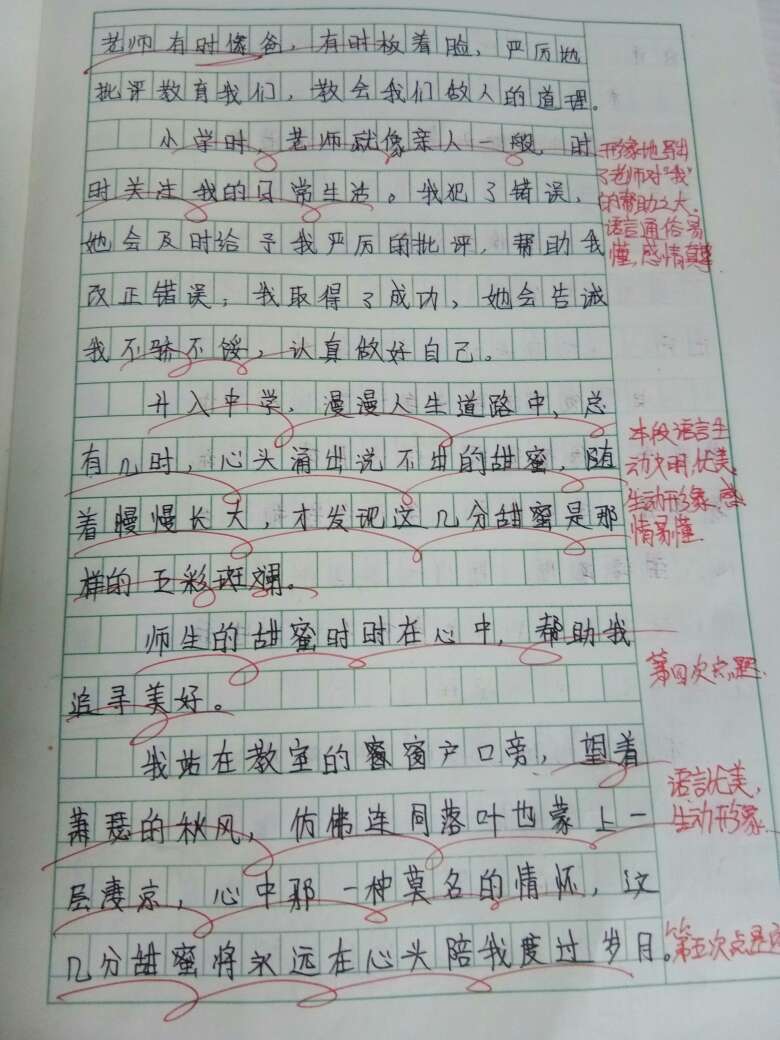 老师有时像爸，有时板着脸，严厉地
批评教育我们，教会我们做人的道理。
小学时，老师就像亲人一般，时
时关注我的日常生活。我犯了错误，
她会及时给予我严厉的批评，帮助我
改正错误；我取得了成功，她会告诫
我不骄不馁，认真做好自己。
升入中学，漫漫人生道路中，总
有几时，心头涌出说不出的甜蜜，随
着慢慢长大，才发现这几分甜蜜是那
样的五彩斑斓。
师生的甜蜜时时在心中，帮助我
追寻美好。
我站在教室的窗户口旁，望着
萧瑟的秋风，仿佛连同落叶也蒙上一
层凄凉，心中那一种莫名的情怀，这
几分甜蜜将永远在心头陪我度过岁月。
形象地写出
了老师对“我”
的帮助之大，
语言通俗易
懂，感情真挚
本段语言生
动文明，优美，
生动形象，感
情易懂
第四次点题
语言优美，
生动形象
第五次点题